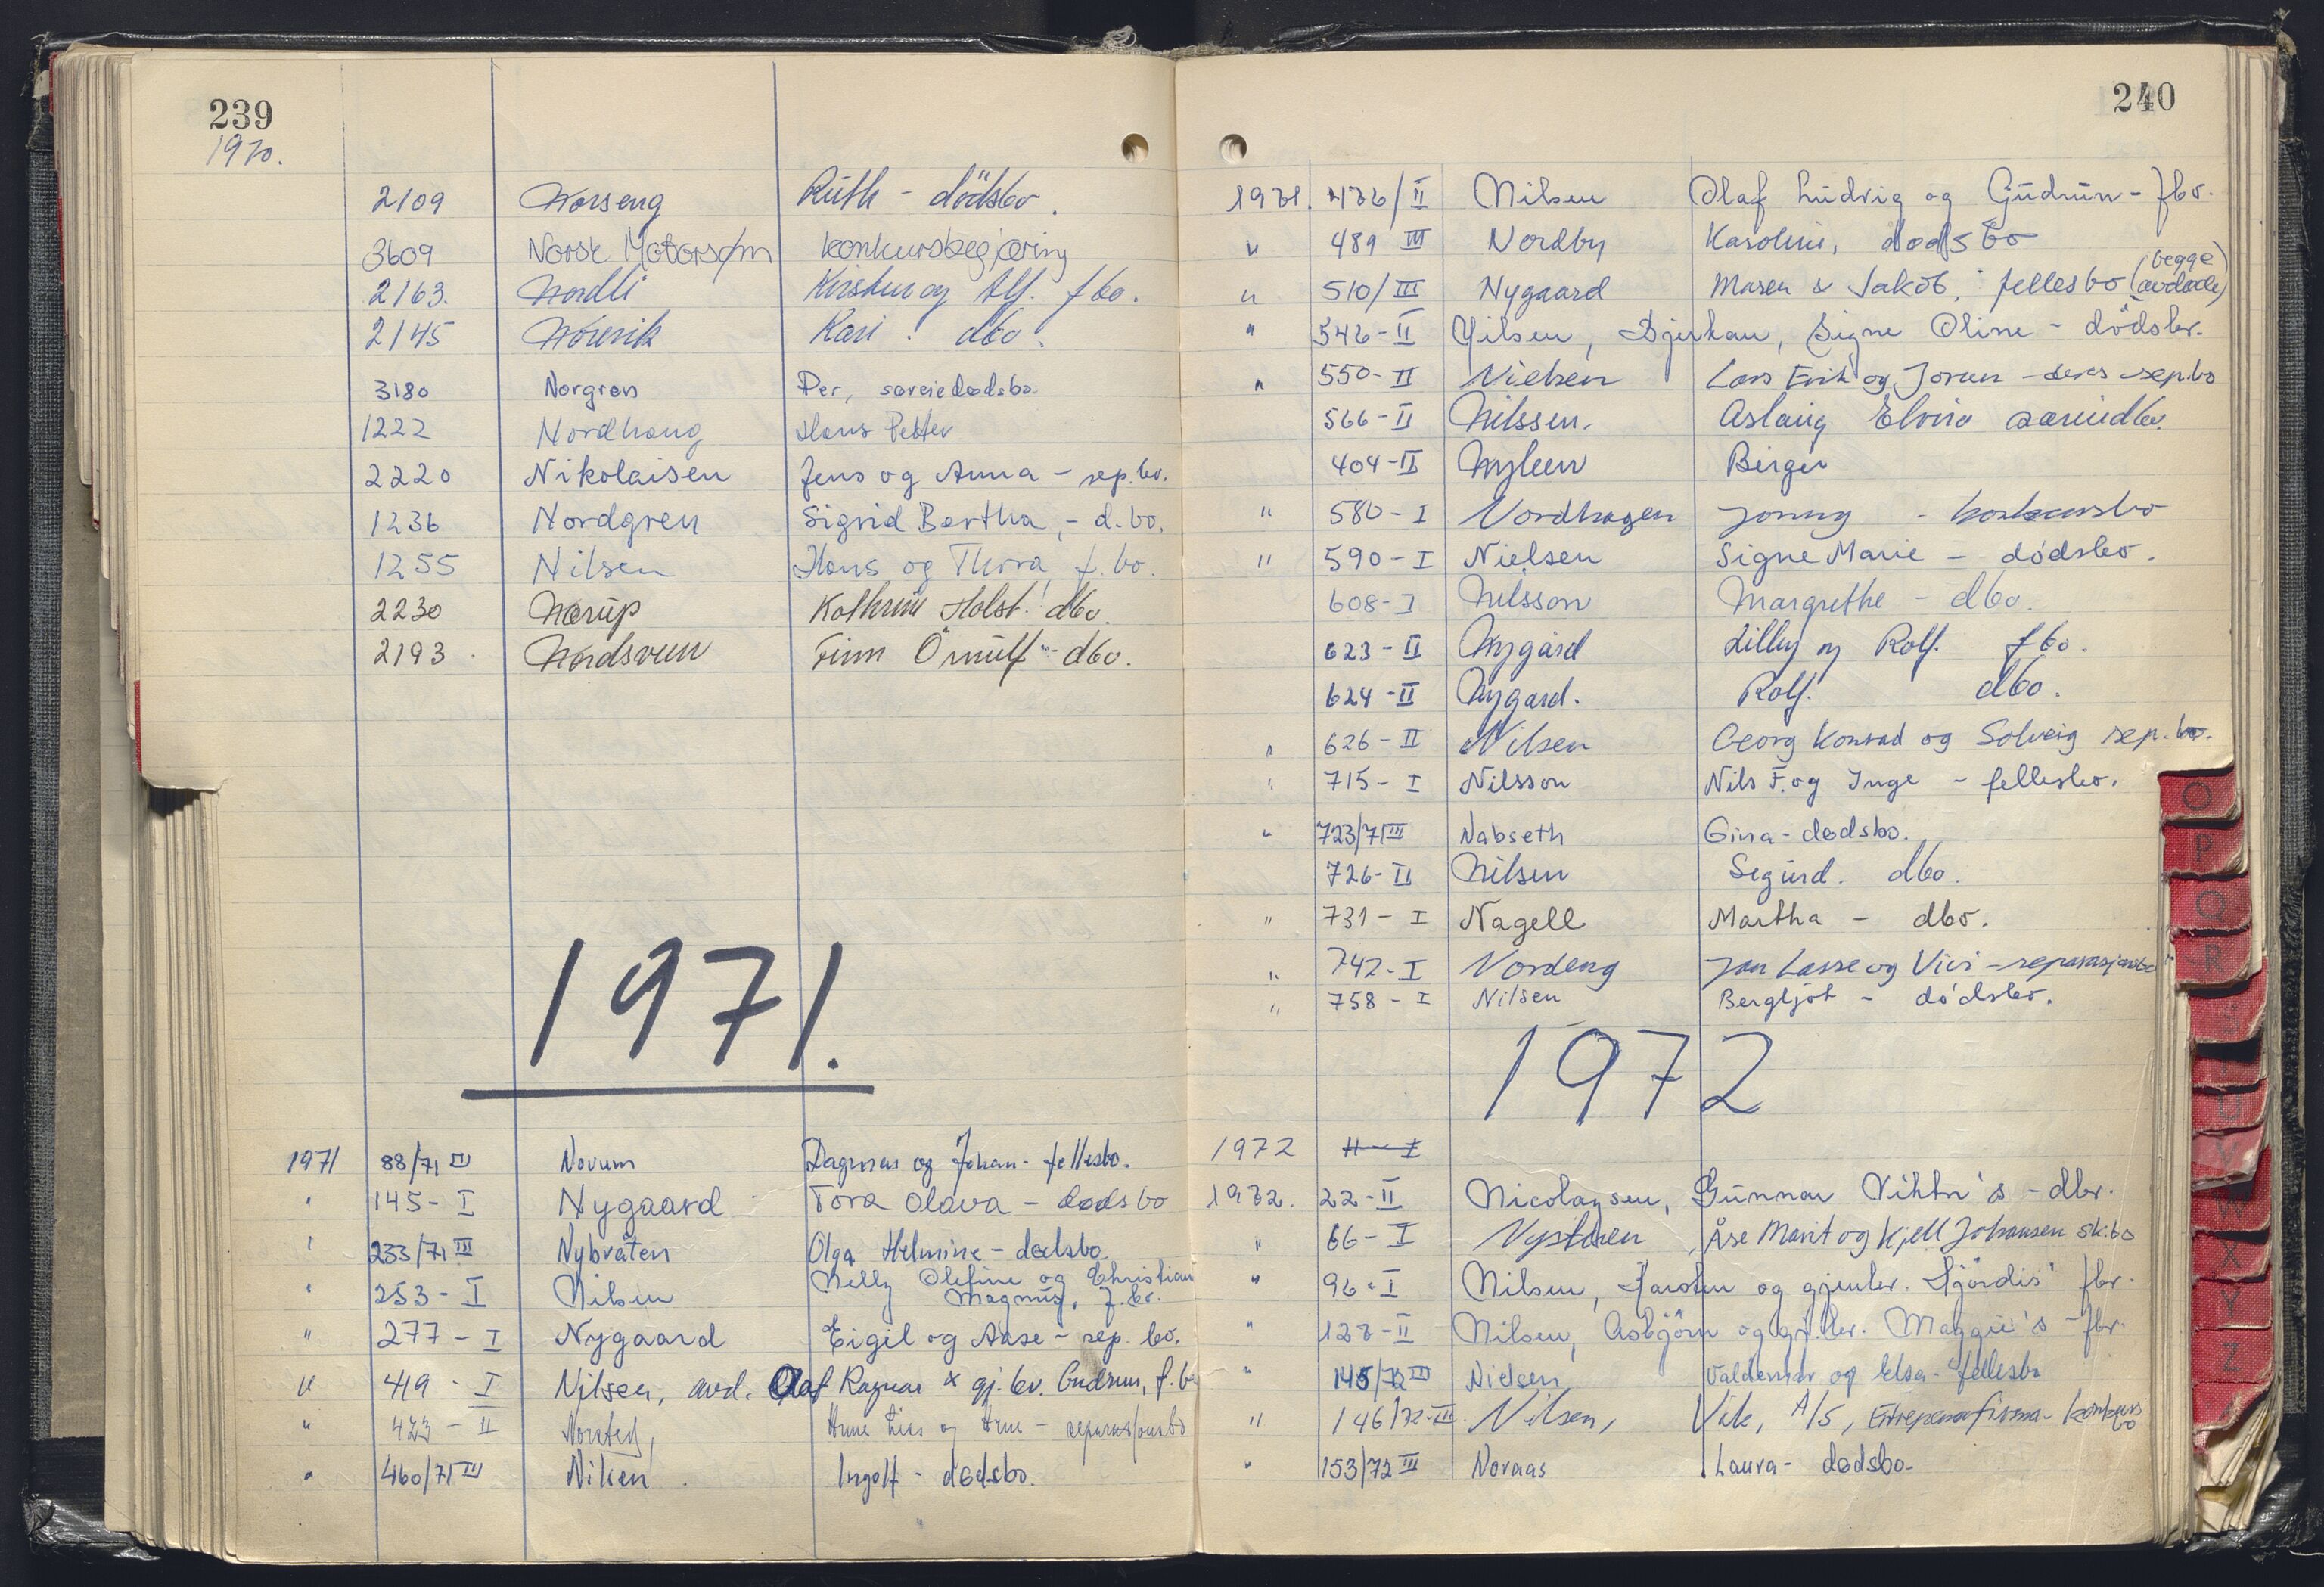 239
1970.
2109 Norseng Ruth - dödsbo.
3609 Norsk Motorsøm konkursbegjæring
2163. Nordli Kirsten og Alf. fbo.
2145 Kari. dbo.
3180 Norgren Per, særeiedødsbo.
1222 Nordhaug Hans Petter
2220 Nikolaisen Jens og Anna - sep.bo.
1236 Nordgren Sigrid Bertha, - d.bo.
1255 Nilsen Hans og Thora, f.bo.
2230 Nærup Kathrine Holst. dbo.
2193. Nordsveen Finn Örnulf - dbo.
1971.
1971 88/71 III Novum Dagmar og Johan - fellesbo.
" 145 - I Nygaard Tora Olava - dødsbo
" 233/71 III Nybråten Olga Helmine - dødsbo
" 253 - I Nilsen Nelly Olefine og Christian
Magnus, f.bo.
" 277 - I Nygaard Eigil og Aase - sep. bo.
" 419 - I Nilsen, avd. Olaf Ragnar & gj.lev. Gudrun, f.bo
" 423 - II og - separasjonsbo
" 460/71 III Nilsen. Ingolf - dødsbo.
240
1971. 436/II Nilsen Olaf Ludvig og Gudrun - fbo.
" 489 III Nordby Karoline, dødsbo
" 510/III Nygaard Maren & Jakob, fellesbo (begge avdøde)
" 546 - II Nilsen, Bjerkan, Signe Oline - dödsbo.
" 550 - II Nielsen Lars Erik og Jorun - deres sep.bo
566 - II Nilssen. Aslaug Elvira særeiedbo.
404 - II Nyleen Birger
" 580 - I Nordhagen Jonny - konkursbo
" 590 - I Nielsen Signe Marie - dødsbo.
608 - I Nilsson Margrethe - dbo.
623 - II Nygård Lilly og Rolf. fbo.
624 - II Nygard. Rolf. dbo.
" 626 - II Nilsen Georg Konrad og Solveig sep.bo.
" 715 - I Nilsson Nils F. og Inge - fellesbo.
" 723/71 III Nabseth Gina - dødsbo.
726 - II Nilsen Sigurd. dbo.
" 731 - I Nagell Martha - dbo.
" 742 - I Nordeng Jan Lasse og Vivi - separasjonsbo
" 758 - I Nilsen Bergljot - dødsbo.
1972
1972 11 - I
1972. 22 - II Nicolaysen, Gunnar Viktor's - dbo.
" 66 - I Nystuen, Åse Marit og Kjell Johansen sk.bo
" 96 - I Nilsen, Karsten og gjenlev. Hjördis' fbo.
" 128 - II Nilsen, Asbjörn og gj.lev. Maggie's - fbo.
" 145/72 III Nielsen Valdemar og Elsa - fellesbo
" 146/72 - III. Nilsen, Vik, A/S, Entreprenørfirma - konkursbo
" 153/72 III Noraas Laura - dødsbo -
O
P
Q
R
U
V
W
X
Y
Z